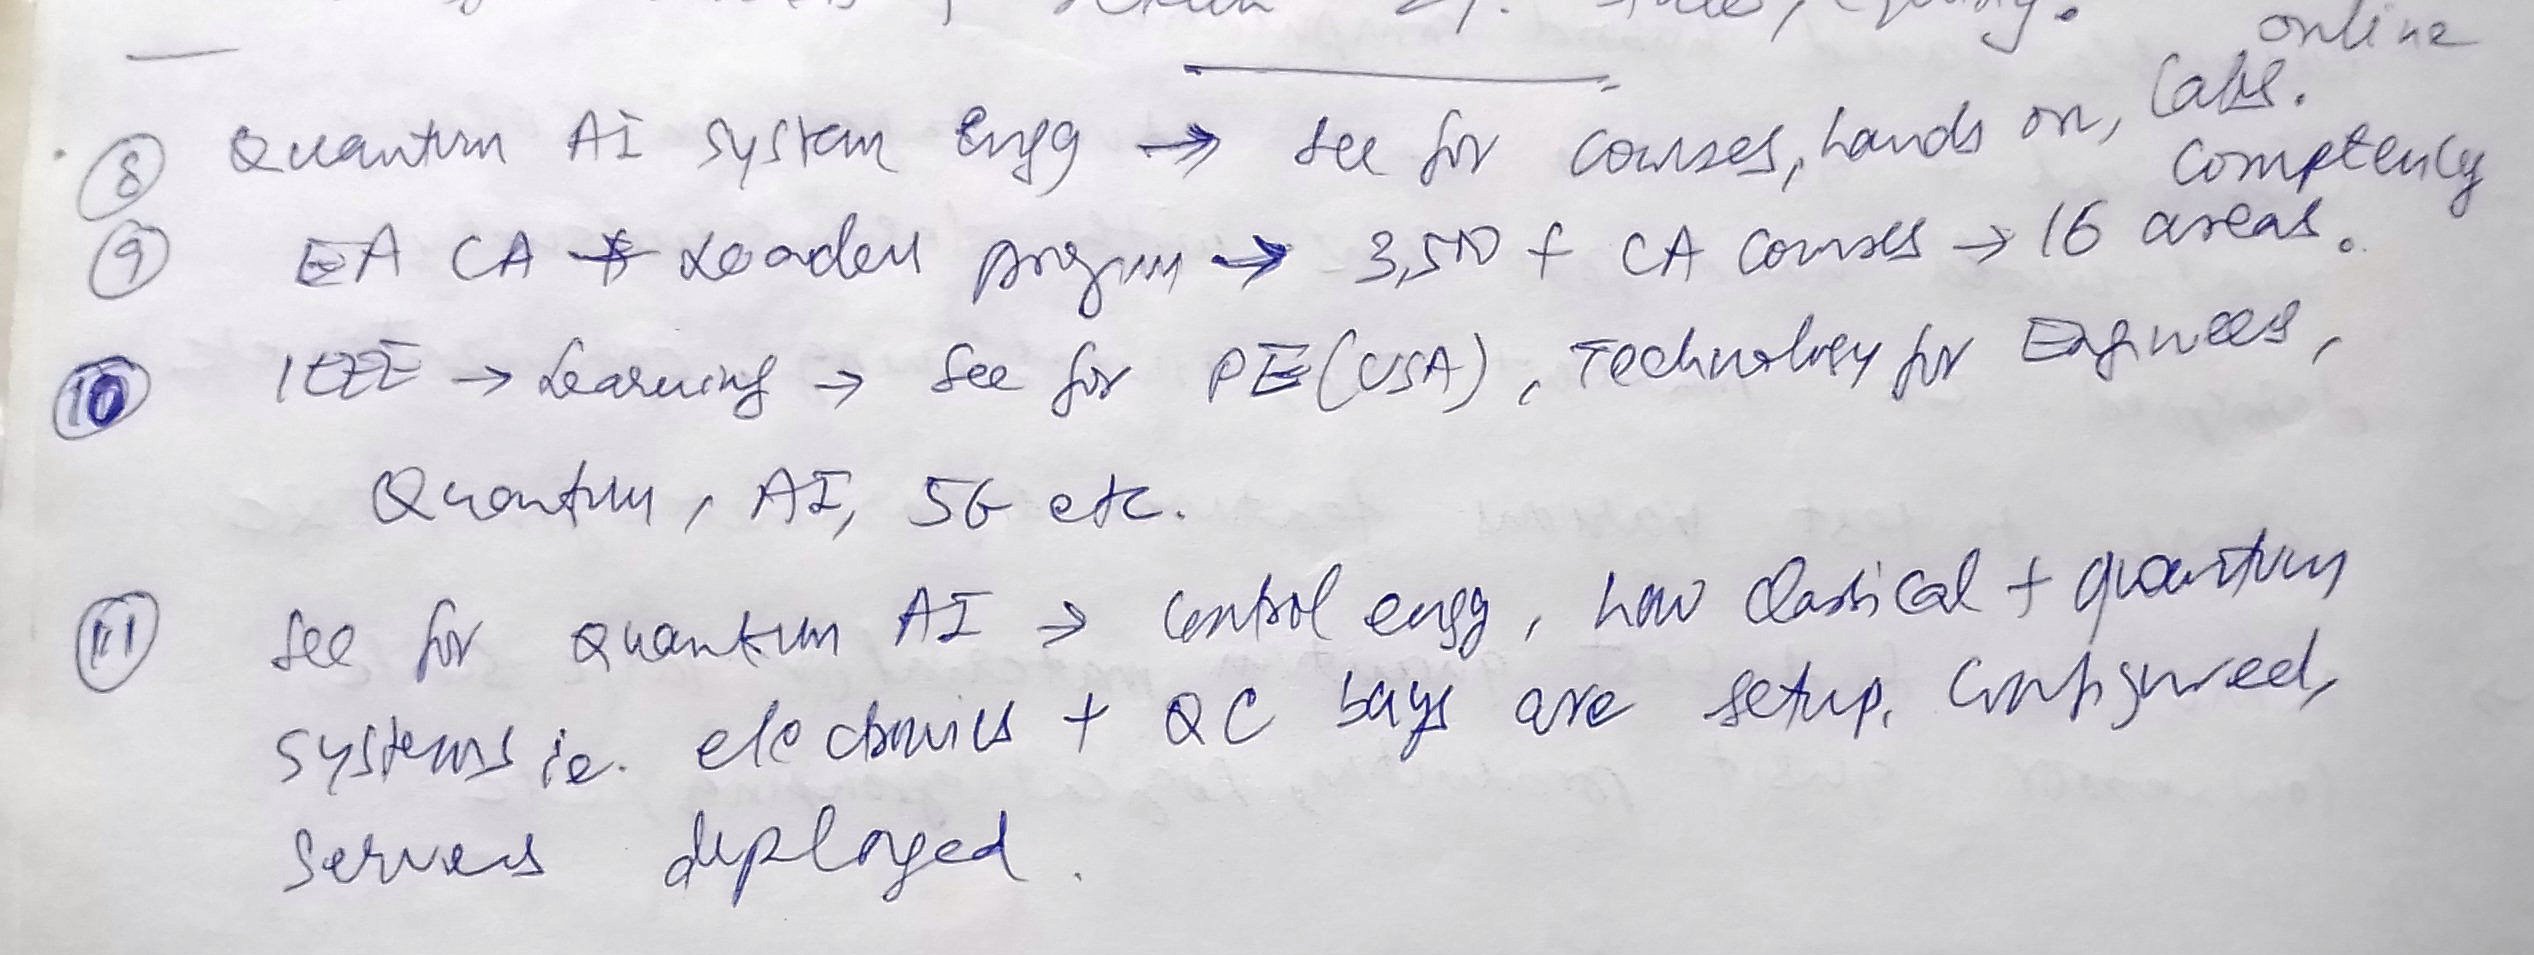 online
⑧ Quantum AI System Engg → see for courses, hands on, Labs.
⑨ EA CA → Leaders program → 3,500 + CA courses → 16 competency areas.
⑩ IEEE → Learning → See for PE (USA), Technology for Engineers,
Quantum, AI, 5G etc.
⑪ See for Quantum AI → Control engg, how classical + quantum
systems ie. electronics + QC bays are setup, configured,
servers deployed.